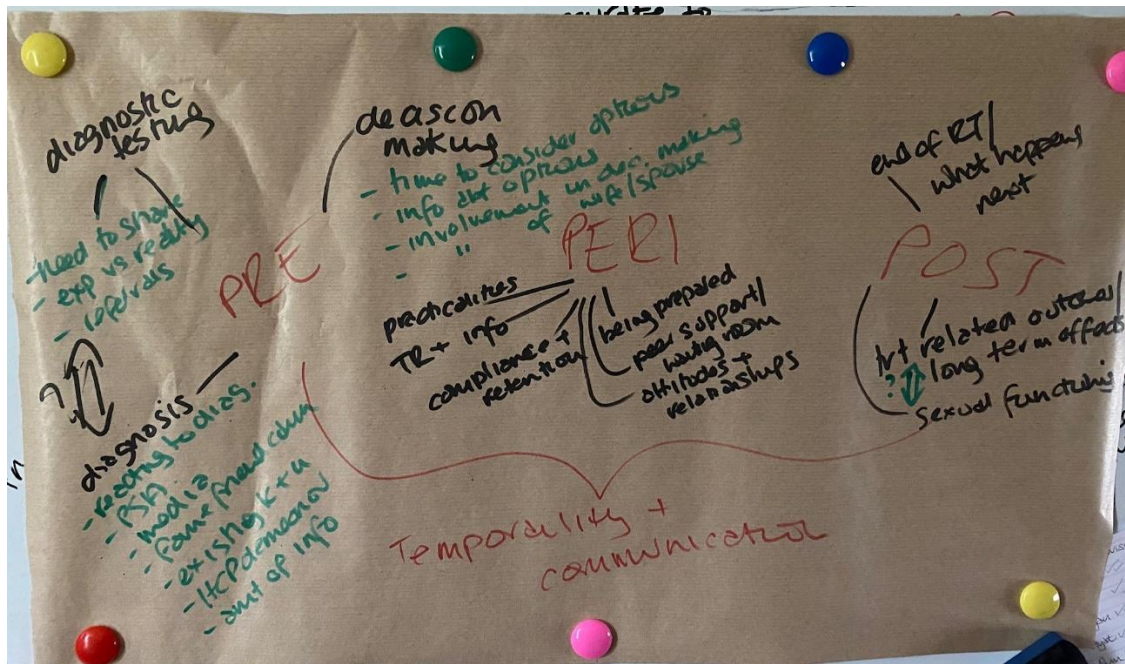 diagnostic
testing
- need to share
- exp vs reality
- referrals
PRE
diagnosis
- reacting to diag.
- PSA
- media
- existing k + u
- HCP demeanour
- amt of info
decision
making
- time to consider options
- info abt options
- involvement in dec. making
- " of wife/spouse
PERI
practicalities
TR + info
compliance +
retention
being prepared
peer support/
waiting room
attitudes +
relationships
end of RT/
what happens
next
POST
trt related outcomes/
long term effects
?
sexual functioning
Temporality +
communication